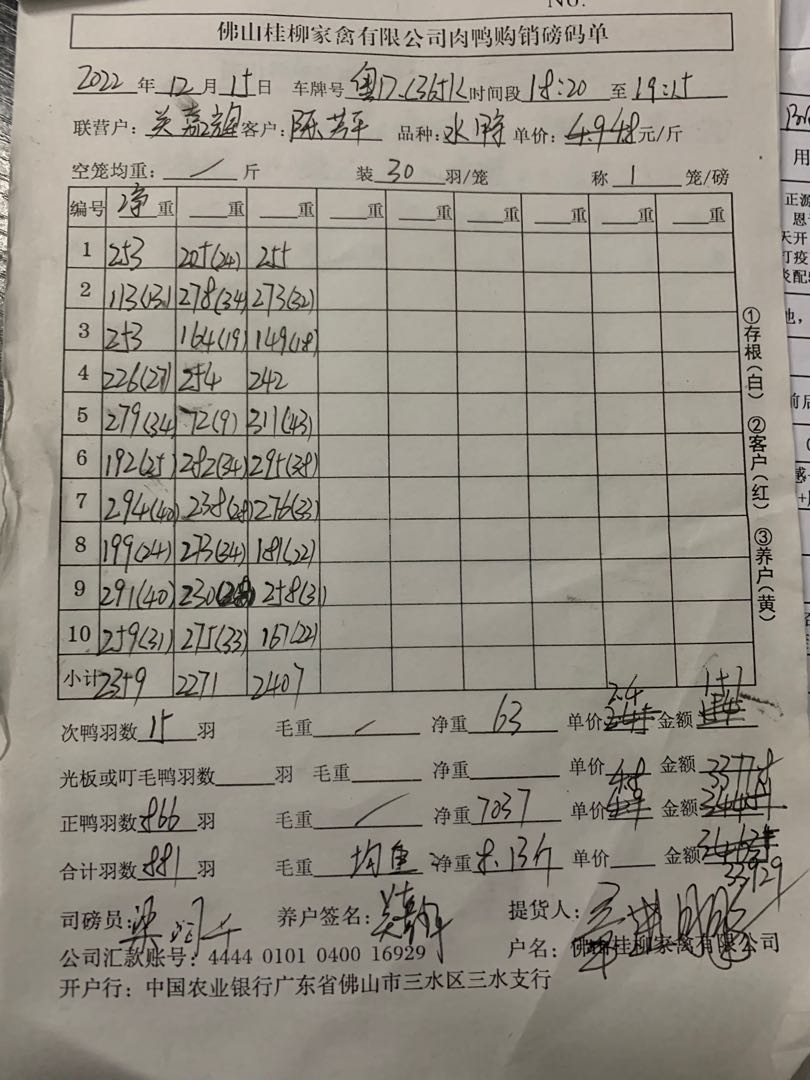 No.
佛山桂柳家禽有限公司肉鸭购销磅码单
2022年12月15日 车牌号 时间段18:20至19:15
联营户: 客户:陈芳平 品种:水鸭 单价:4.948元/斤
空笼均重:/斤 装30羽/笼 称1笼/磅
编号 净重 重 重 重 重 重 重 重 重
1 253 205(24) 255
2 113(13) 278(34) 273(32)
3 253 164(19) 149(18)
4 226(27) 254 242
5 279(34) 72(9) 311(43)
6 192(25) 282(34) 295(38)
7 294(40) 238(28) 276(33)
8 199(24) 273(34) 181(22)
9 291(40) 230(28) 258(31)
10 259(31) 275(33) 167(22)
小计 2359 2271 2407
①存根(白) ②客户(红) ③养户(黄)
次鸭羽数15羽 毛重/ 净重63 单价2.4 金额151
光板或叮毛鸭羽数 羽 毛重 净重 单价4.8 金额33778
正鸭羽数866羽 毛重/ 净重7037 单价 金额
合计羽数881羽 毛重 均重 净重8.13斤 单价 金额
33929
司磅员: 养户签名: 提货人:
公司汇款账号:4444 0101 0400 16929 户名:佛山桂柳家禽有限公司
开户行:中国农业银行广东省佛山市三水区三水支行